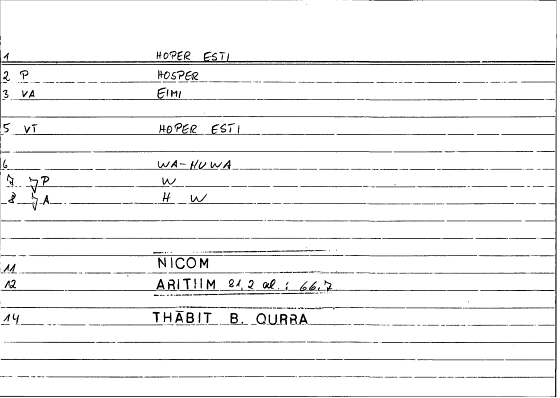 1 HOPER ESTI
2 P HOSPER
3 VA EIMI
5 VT HOPER ESTI
6 WA-HUWA
7 √P W
8 √A H W
11 NICOM
12 ARITIIM 21,2 al : 66,7
14 THĀBIT B. QURRA